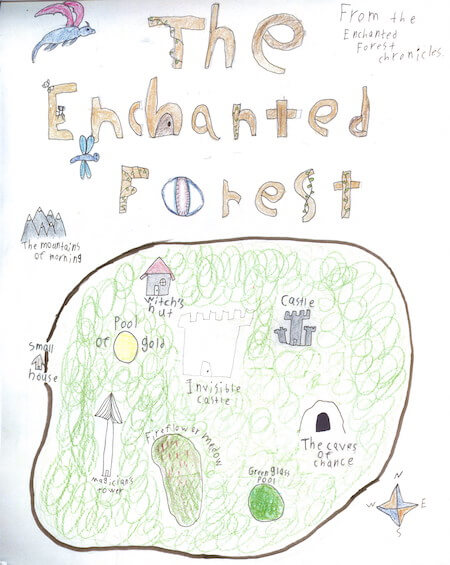 The
Enchanted
Forest
From the
Enchanted
Forest
chronicles.
The mountains
of morning
witch's
hut
Castle
Pool
of gold
small
house
Invisible
castle!
Fireflower medow
The caves
of chance
magician's
tower
Green glass
pool
N
W E
S